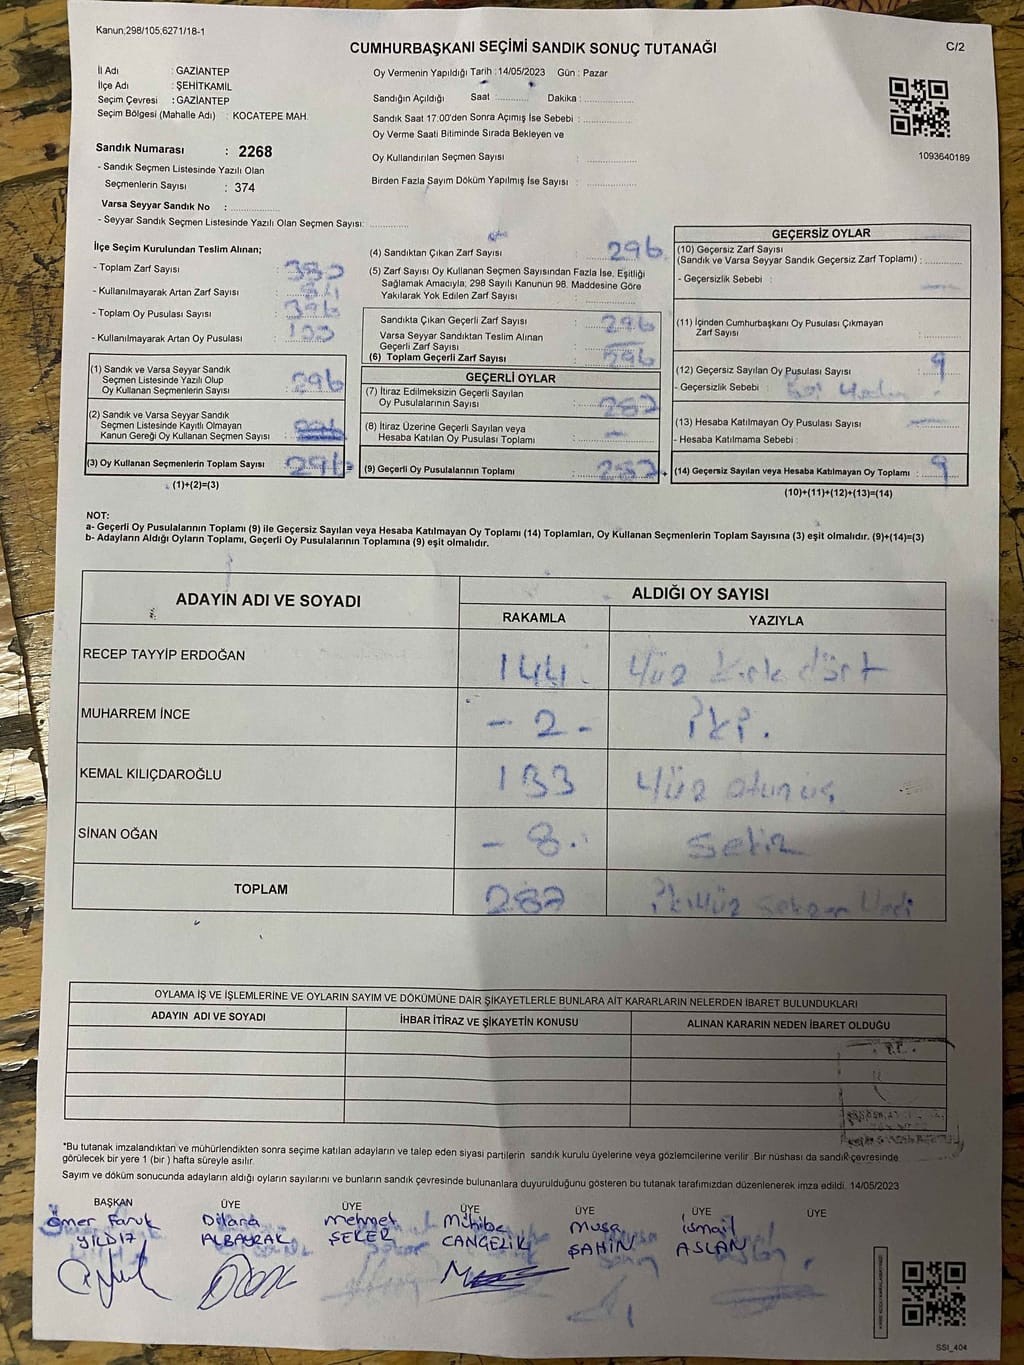 Kanun;298/105,6271/18-1
CUMHURBAŞKANI SEÇİMİ SANDIK SONUÇ TUTANAĞI
C/2
İl Adı : GAZİANTEP
İlçe Adı : ŞEHİTKAMİL
Seçim Çevresi : GAZİANTEP
Seçim Bölgesi (Mahalle Adı) : KOCATEPE MAH.
Oy Vermenin Yapıldığı Tarih : 14/05/2023 Gün : Pazar
Sandığın Açıldığı Saat :........... Dakika :...............
Sandık Saat 17:00'den Sonra Açımış İse Sebebi :...............
Oy Verme Saati Bitiminde Sırada Bekleyen ve
Oy Kullandırılan Seçmen Sayısı :...............
Birden Fazla Sayım Döküm Yapılmış İse Sayısı :...............
1093640189
Sandık Numarası : 2268
- Sandık Seçmen Listesinde Yazılı Olan
Seçmenlerin Sayısı : 374
Varsa Seyyar Sandık No :...............
- Seyyar Sandık Seçmen Listesinde Yazılı Olan Seçmen Sayısı:...............
İlçe Seçim Kurulundan Teslim Alınan;
- Toplam Zarf Sayısı : 380
- Kullanılmayarak Artan Zarf Sayısı : 84
- Toplam Oy Pusulası Sayısı : 396
- Kullanılmayarak Artan Oy Pusulası : 100
(1) Sandık ve Varsa Seyyar Sandık
Seçmen Listesinde Yazılı Olup
Oy Kullanan Seçmenlerin Sayısı : 296
(2) Sandık ve Varsa Seyyar Sandık
Seçmen Listesinde Kayıtlı Olmayan
Kanun Gereği Oy Kullanan Seçmen Sayısı :
(3) Oy Kullanan Seçmenlerin Toplam Sayısı : 296
(1)+(2)=(3)
(4) Sandıktan Çıkan Zarf Sayısı : 296
(5) Zarf Sayısı Oy Kullanan Seçmen Sayısından Fazla İse, Eşitliği
Sağlamak Amacıyla, 298 Sayılı Kanunun 98. Maddesine Göre
Yakılarak Yok Edilen Zarf Sayısı :...............
Sandıkta Çıkan Geçerli Zarf Sayısı : 296
Varsa Seyyar Sandıktan Teslim Alınan
Geçerli Zarf Sayısı : —
(6) Toplam Geçerli Zarf Sayısı : 296
GEÇERLİ OYLAR
(7) İtiraz Edilmeksizin Geçerli Sayılan
Oy Pusulalarının Sayısı : 287
(8) İtiraz Üzerine Geçerli Sayılan veya
Hesaba Katılan Oy Pusulası Toplamı : —
(9) Geçerli Oy Pusulalarının Toplamı : 287
GEÇERSİZ OYLAR
(10) Geçersiz Zarf Sayısı
(Sandık ve Varsa Seyyar Sandık Geçersiz Zarf Toplamı) :
- Geçersizlik Sebebi : —
(11) İçinden Cumhurbaşkanı Oy Pusulası Çıkmayan
Zarf Sayısı :
(12) Geçersiz Sayılan Oy Pusulası Sayısı : 9
- Geçersizlik Sebebi :
(13) Hesaba Katılmayan Oy Pusulası Sayısı : —
- Hesaba Katılmama Sebebi :
(14) Geçersiz Sayılan veya Hesaba Katılmayan Oy Toplamı : 9
(10)+(11)+(12)+(13)=(14)
NOT:
a- Geçerli Oy Pusulalarının Toplamı (9) ile Geçersiz Sayılan veya Hesaba Katılmayan Oy Toplamı (14) Toplamları, Oy Kullanan Seçmenlerin Toplam Sayısına (3) eşit olmalıdır. (9)+(14)=(3)
b- Adayların Aldığı Oyların Toplamı, Geçerli Oy Pusulalarının Toplamına (9) eşit olmalıdır.
ADAYIN ADI VE SOYADI
ALDIĞI OY SAYISI
RAKAMLA YAZIYLA
RECEP TAYYİP ERDOĞAN 144. Yüz kırk dört
MUHARREM İNCE - 2 - İki.
KEMAL KILIÇDAROĞLU 133 Yüz otuz üç
SİNAN OĞAN - 8. Sekiz
TOPLAM 287 İkiYüz seksen Yedi
OYLAMA İŞ VE İŞLEMLERİNE VE OYLARIN SAYIM VE DÖKÜMÜNE DAİR ŞİKAYETLERLE BUNLARA AİT KARARLARIN NELERDEN İBARET BULUNDUKLARI
ADAYIN ADI VE SOYADI İHBAR İTİRAZ VE ŞİKAYETİN KONUSU ALINAN KARARIN NEDEN İBARET OLDUĞU
*Bu tutanak imzalandıktan ve mühürlendikten sonra seçime katılan adayların ve talep eden siyasi partilerin sandık kurulu üyelerine veya gözlemcilerine verilir .Bir nüshası da sandık çevresinde
görülecek bir yere 1 (bir ) hafta süreyle asılır.
Sayım ve döküm sonucunda adayların aldığı oyların sayılarını ve bunların sandık çevresinde bulunanlara duyurulduğunu gösteren bu tutanak tarafımızdan düzenlenerek imza edildi. 14/05/2023
BAŞKAN ÜYE ÜYE ÜYE ÜYE ÜYE ÜYE
Ömer Faruk Dilara Mehmet Mühibe Musa İsmail
YILDIZ ALBAYRAK ŞEKER CANGELİK ŞAHİN ASLAN
SSI_404